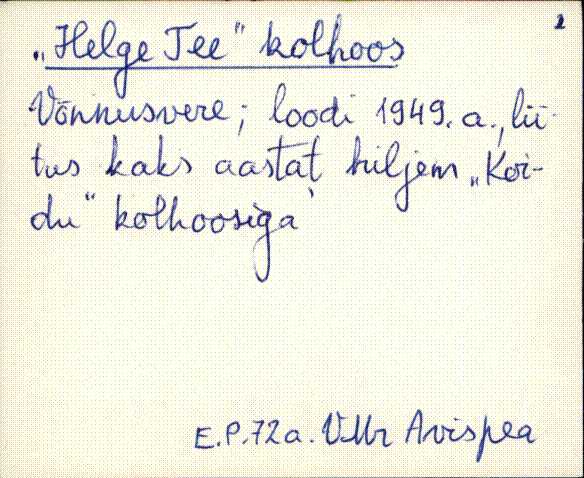 2
„Helge Tee" kolhoos
Võnnusvere; loodi 1949. a., lii-
tus kaks aastat hiljem „Koi-
du" kolhoosiga
E.P. 72 a. VMr Avispea